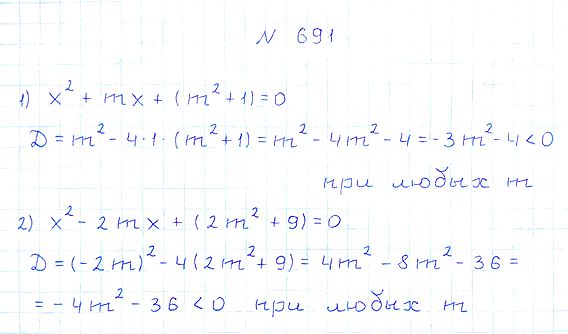 N 691
1) x² + mx + (m² + 1) = 0
D = m² - 4·1·(m² + 1) = m² - 4m² - 4 = -3m² - 4 < 0
при любых m
2) x² - 2mx + (2m² + 9) = 0
D = (-2m)² - 4(2m² + 9) = 4m² - 8m² - 36 =
= -4m² - 36 < 0 при любых m